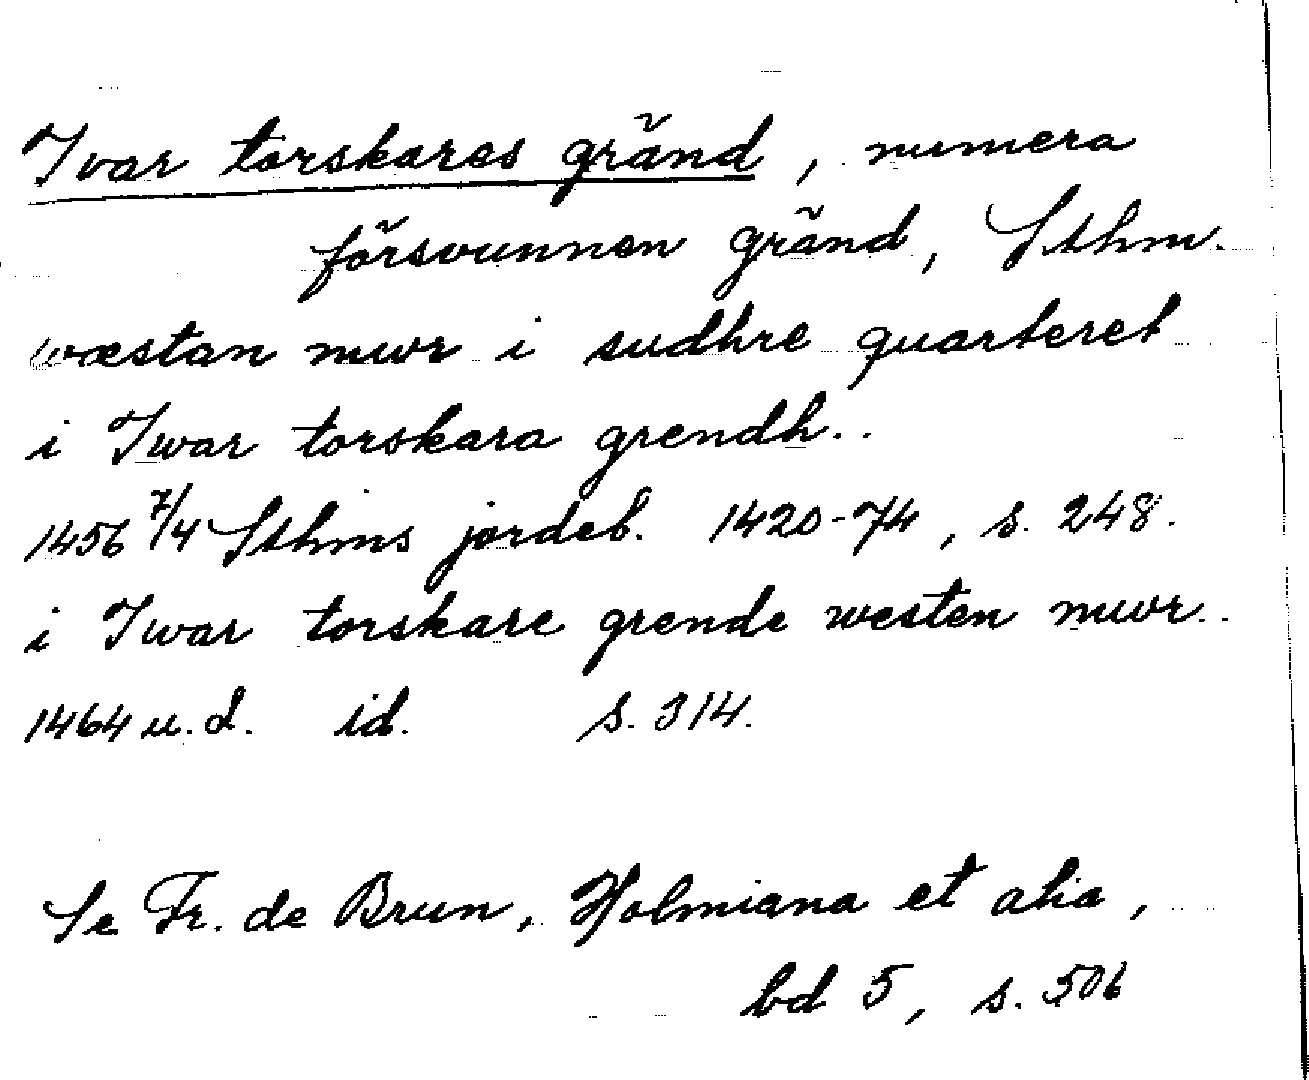 Ivar torskares gränd, numera
försvunnen gränd, Sthm.
wæstan mwr i sudhre quarteret
i Iwar torskara grendh..
1456 7/4 Sthms jordeb. 1420-74, s. 248.
i Iwar torskare grende westen mwr..
1464 u.d. id. s. 314.
Se Fr. de Brun, Holmiana et alia,
bd 5, s. 506